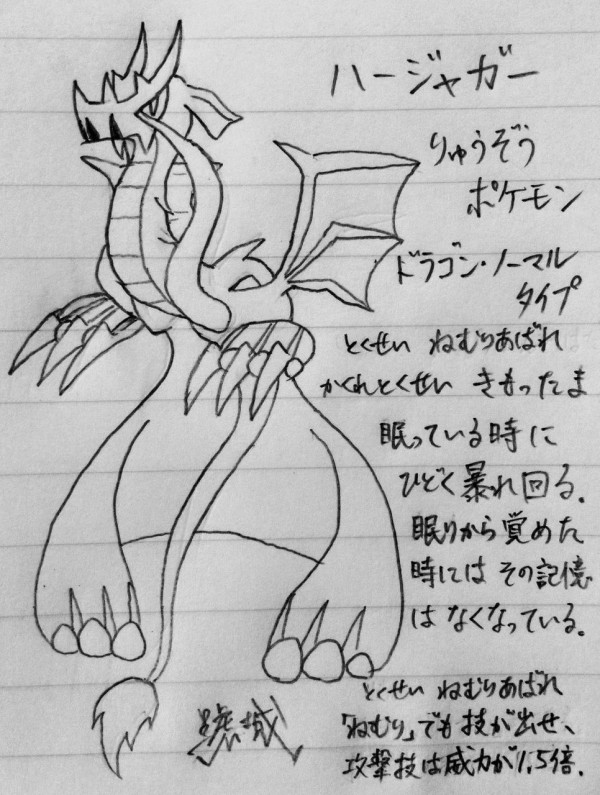 ハージャガー
りゅうぞう
ポケモン
ドラゴン・ノーマル
タイプ
とくせい ねむりあばれ
かくれとくせい きもったま
眠っている時に
ひどく暴れ回る.
眠りから覚めた
時にはその記憶
はなくなっている.
とくせい ねむりあばれ
「ねむり」でも技が出せ、
攻撃技は威力が1.5倍.